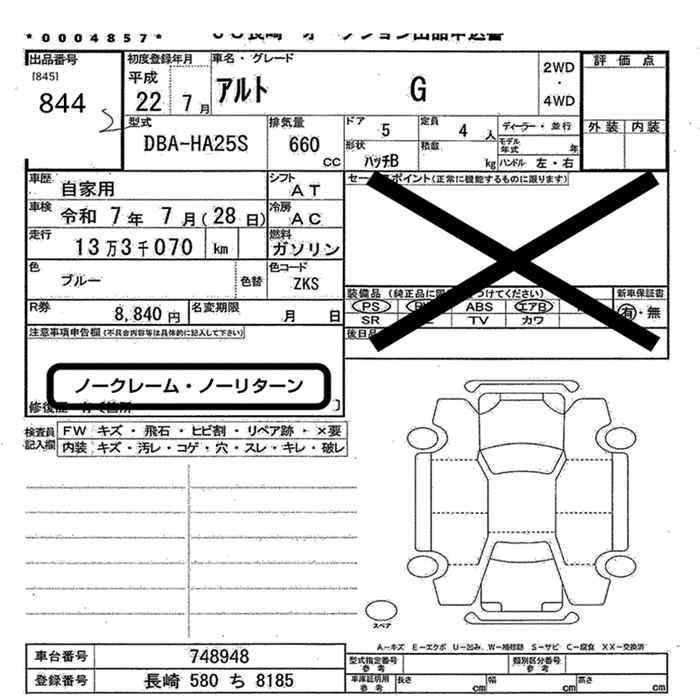 *0004857* JU長崎 オークション出品申込書
出品番号 初度登録年月 車名・グレード 評価点
[845] 平成 2WD
844 22 7月 アルト G ・
4WD
型式 排気量 ドア 定員 ディーラー・並行 外装 内装
DBA-HA25S 660 5 4人 モデル年式 年
CC 形状 ハッチB 積載 kg ハンドル 左・右
車歴 自家用 シフト AT セールスポイント(正常に機能するものに限ります)
車検 令和 7年 7月(28日) 冷房 AC
走行 13万3千070 km 燃料 ガソリン
色 ブルー 色替 色コード ZKS
装備品 (純正品に限 つけてください) 新車保証書
R券 8,840円 名変期限 月 日 PS ABS エアB 有・無
SR TV カワ
注意事項申告欄(不具合内容等は具体的に記入して下さい) 後日品
ノークレーム・ノーリターン
修復歴 有で箇所
検査員記入欄 FW キズ・飛石・ヒビ割・リペア跡・×要
内装 キズ・汚レ・コゲ・穴・スレ・キレ・破レ
スペア
A-キズ E-エクボ U-凹み W-補修跡 S-サビ C-腐食 XX-交換済
車台番号 748948 型式指定番号 参考 類別区分番号 参考
登録番号 長崎 580 ち 8185 車庫証明用 参考 長さ cm 幅 cm 高さ cm